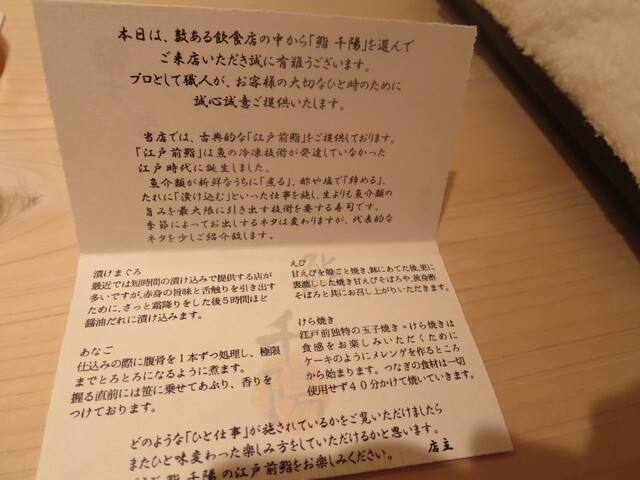 本日は、数ある飲食店の中から「鮨 千陽」を選んで
ご来店いただき誠に有難うございます。
プロとして職人が、お客様の大切なひと時のために
誠心誠意ご提供いたします。
当店では、古典的な「江戸前鮨」をご提供しております。
「江戸前鮨」は魚の冷凍技術が発達していなかった
江戸時代に誕生しました。
魚介類が新鮮なうちに「煮る」、酢や塩で「〆める」、
たれに「漬け込む」といった仕事を施し、生よりも魚介類の
旨みを最大限に引き出す技術を要する寿司です。
季節によってお出しするネタは変わりますが、代表的な
ネタを少しご紹介致します。
漬けまぐろ
最近では短時間の漬け込みで提供する店が
多いですが、赤身の旨味と舌触りを引き出す
ために、さっと霜降りをした後5時間ほど
醤油だれに漬け込みます。
あなご
仕込みの際に腹骨を1本ずつ処理し、極限
までとろとろになるように煮ます。
握る直前には笹に乗せてあぶり、香りを
つけております。
えび
甘えびを殻ごと焼き、鉢にあてた後、更に
裏漉しした焼き甘えびそぼろや、黄身酢
そぼろと共にお召し上がりいただきます。
けら焼き
江戸前独特の玉子焼き=けら焼きは
食感をお楽しみいただくために
ケーキのようにメレンゲを作るところ
から始まります。つなぎの食材は一切
使用せず40分かけて焼いていきます。
鮨
千陽
どのような「ひと仕事」が施されているかをご覧いただけましたら
またひと味変わった楽しみ方をしていただけるかと思います。
鮨 千陽の江戸前鮨をお楽しみください。
店主